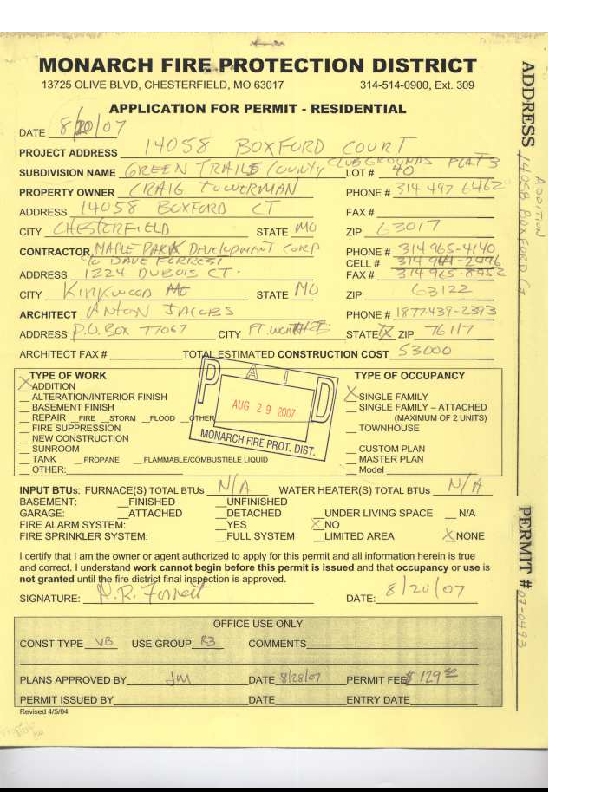 MONARCH FIRE PROTECTION DISTRICT
13725 OLIVE BLVD, CHESTERFIELD, MO 63017 314-514-0900, Ext. 309
APPLICATION FOR PERMIT - RESIDENTIAL
DATE 8/20/07
PROJECT ADDRESS 14058 BOXFORD COURT
SUBDIVISION NAME GREEN TRAILS COUNTY CLUB GROUNDS PLAT 3 LOT # 40
PROPERTY OWNER CRAIG PHONE # 314 497 6462
ADDRESS 14058 BOXFORD CT FAX #
CITY CHESTERFIELD STATE MO ZIP 63017
CONTRACTOR MAPLE PARK Development CORP PHONE # 314 965-4140
% DAVE FORREST CELL # 314
ADDRESS 1224 DUBOIS CT. FAX # 314 965-8952
CITY Kirkwood MO STATE MO ZIP 63122
ARCHITECT ANTON PHONE # 1877-437-2393
ADDRESS P.O. BOX 77067 CITY FT. STATE TX ZIP 76117
ARCHITECT FAX # TOTAL ESTIMATED CONSTRUCTION COST 53000
TYPE OF WORK
X ADDITION
ALTERATION/INTERIOR FINISH
BASEMENT FINISH
REPAIR FIRE STORM FLOOD OTHER
FIRE SUPPRESSION
NEW CONSTRUCTION
SUNROOM
TANK PROPANE FLAMMABLE/COMBUSTIBLE LIQUID
OTHER:
PAID
AUG 29 2007
MONARCH FIRE PROT. DIST.
TYPE OF OCCUPANCY
X SINGLE FAMILY
SINGLE FAMILY – ATTACHED
(MAXIMUM OF 2 UNITS)
TOWNHOUSE
CUSTOM PLAN
MASTER PLAN
Model
INPUT BTUs: FURNACE(S) TOTAL BTUs N/A WATER HEATER(S) TOTAL BTUs N/A
BASEMENT: FINISHED UNFINISHED
GARAGE: ATTACHED DETACHED UNDER LIVING SPACE N/A
FIRE ALARM SYSTEM: YES X NO
FIRE SPRINKLER SYSTEM: FULL SYSTEM LIMITED AREA X NONE
I certify that I am the owner or agent authorized to apply for this permit and all information herein is true
and correct. I understand work cannot begin before this permit is issued and that occupancy or use is
not granted until the fire district final inspection is approved.
SIGNATURE: N.R. Forrest DATE: 8/20/07
OFFICE USE ONLY
CONST TYPE VB USE GROUP R3 COMMENTS
PLANS APPROVED BY JM DATE 8/28/07 PERMIT FEE $129
PERMIT ISSUED BY DATE ENTRY DATE
Revised 4/5/04
ADDRESS 14058 BOXFORD CT
ADDITION
PERMIT # 07-0493